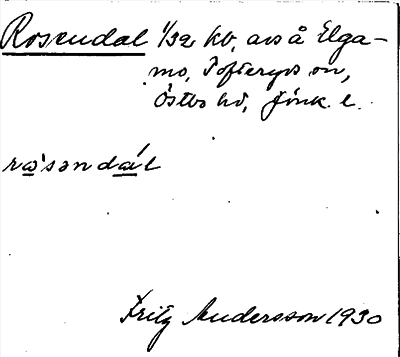 Rosendal 1/32 kb, avs å Elga-
mo, Tofteryds sn,
Östbo hd, Jönk. l.
rωsəndál
Fritz Andersson 1930